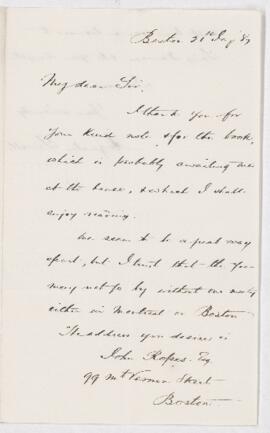 Boston 21st
My dear Sir,
I thank you for
your kind note, & for the book,
which is probably awaiting me
at the house, & which I shall
enjoy reading.
We seem to be a great way
apart, but I trust that the
may not go by without our
either in Montreal or Boston
The address you desire is
John Ropes. Esq
99 Mt Vernon Street
Boston